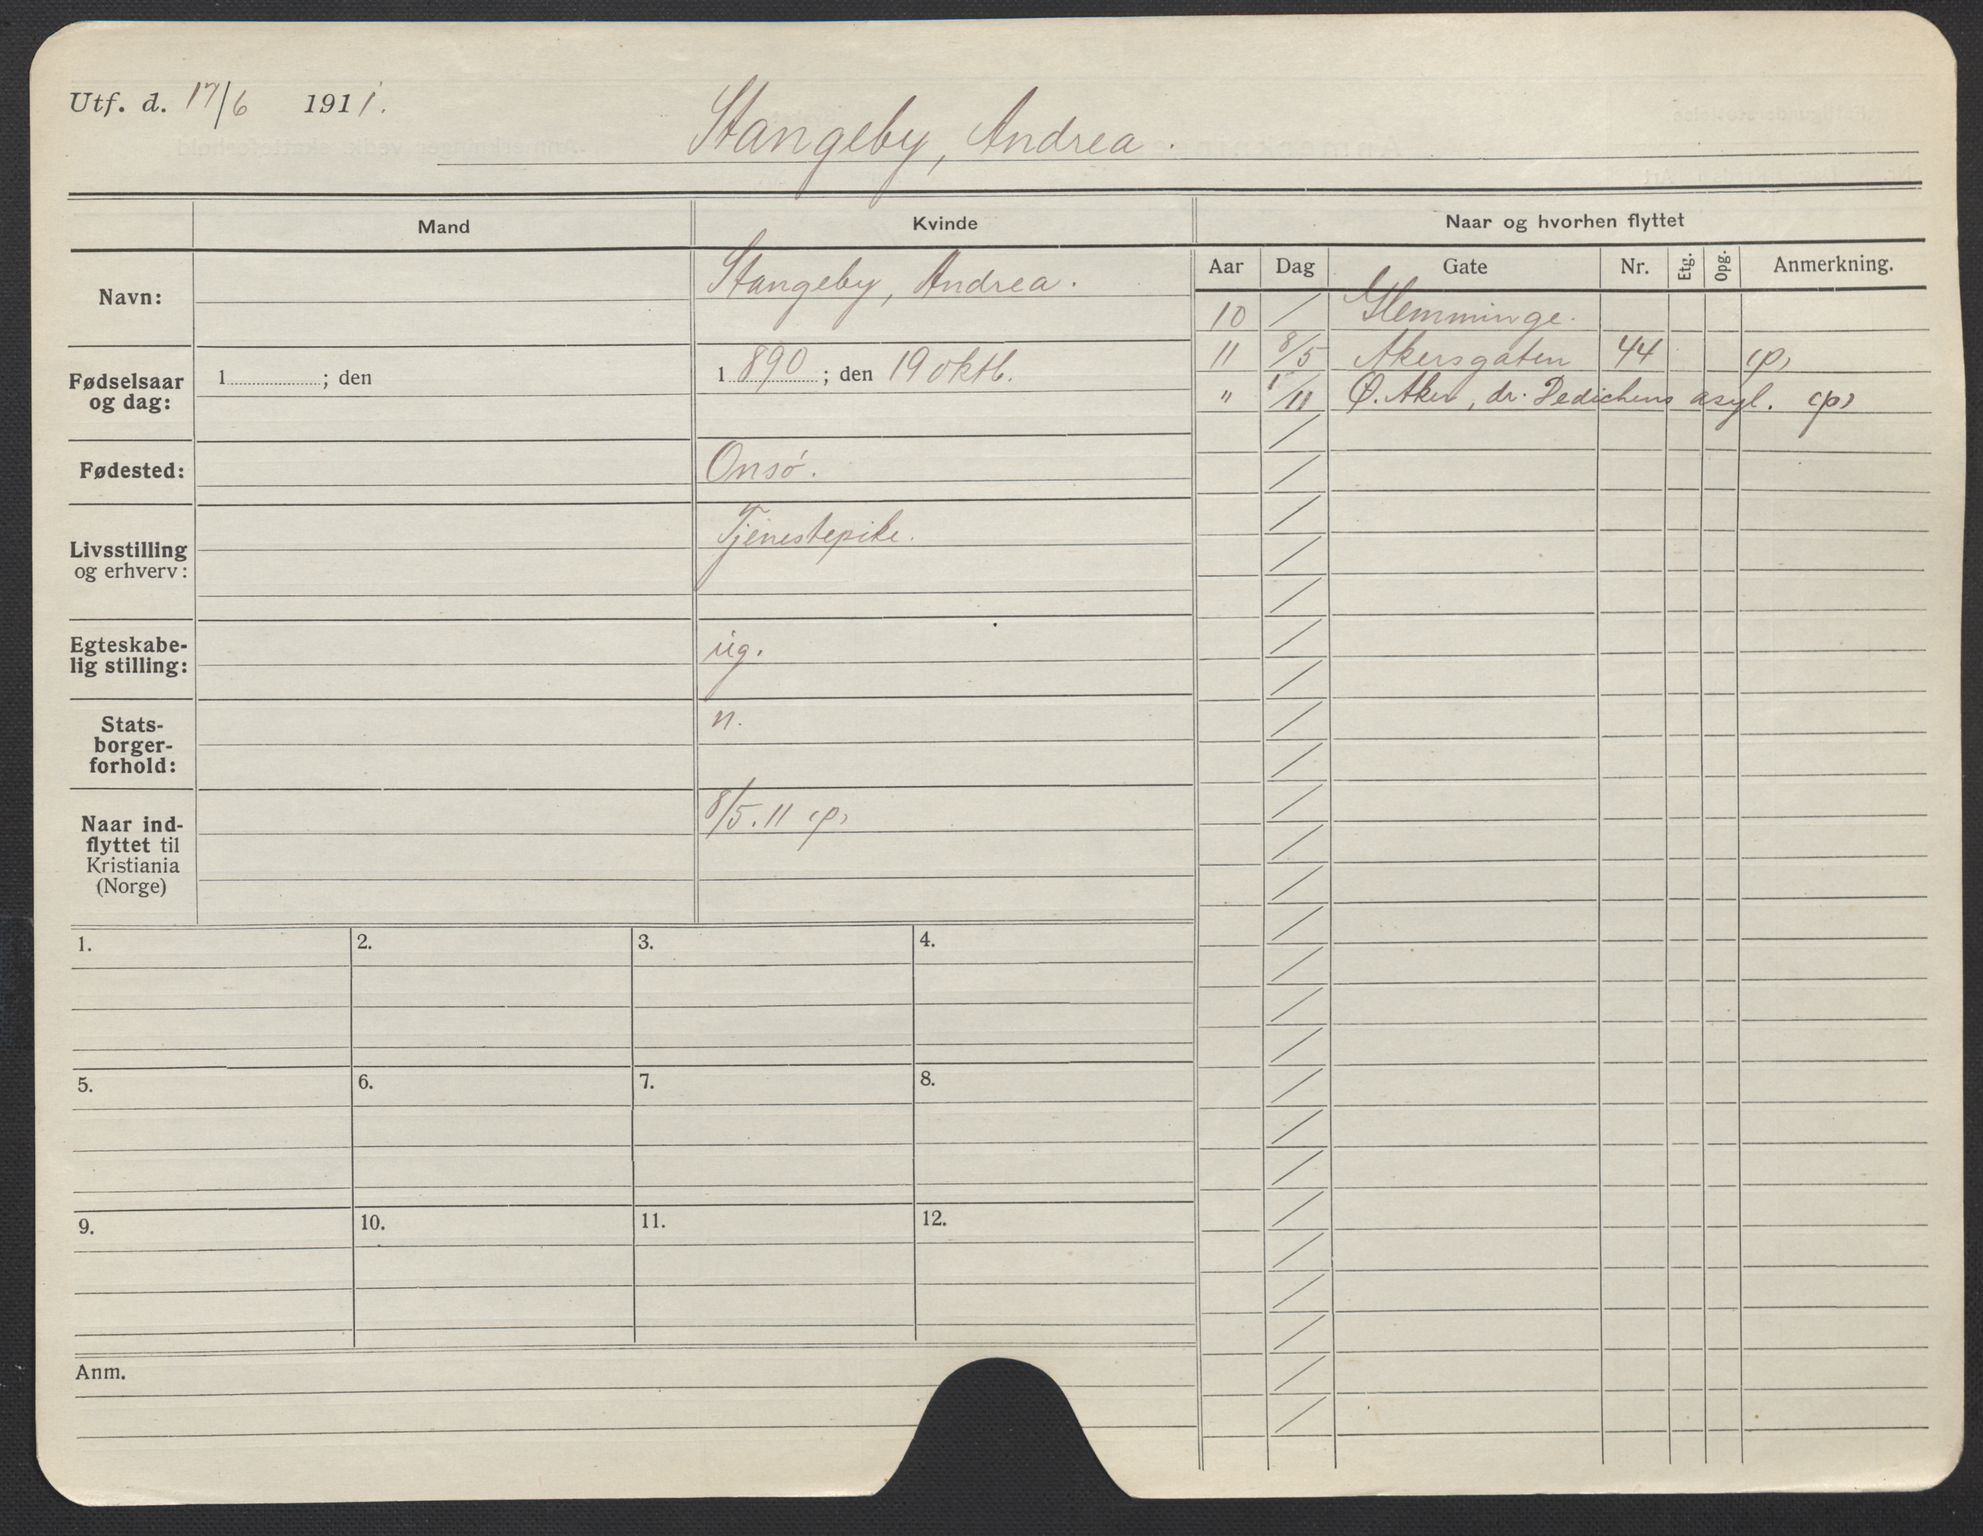 Utf. d. 17/6 1911.
Stangeby, Andrea.
Mand Kvinde Naar og hvorhen flyttet
Aar Dag Gate Nr. Etg. Opg. Anmerkning.
Navn: Stangeby, Andrea.
Fødselsaar og dag: 1 ; den 1890 ; den 19 oktb.
Fødested: Onsø.
Livsstilling og erhverv: Tjenestepike.
Egteskabe-
lig stilling: ug.
Stats-
borger-
forhold: n.
Naar ind-
flyttet til
Kristiania
(Norge) 8/5. 11 (p)
10 / Glemminge.
11 8/5 Akersgaten 44 (p)
" 1/11 Ø. Aker, dr. Dedichens asyl. (p)
1. 2. 3. 4.
5. 6. 7. 8.
9. 10. 11. 12.
Anm.